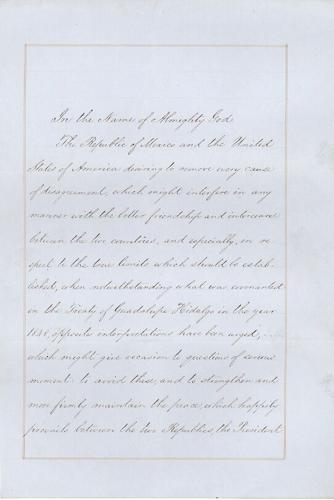 In the Name of Almighty God
The Republic of Mexico and the United
States of America desiring to remove every cause
of disagreement, which might interfere in any
manner with the better friendship and intercourse
between the two countries, and especially, in re-
spect to the true limits which should be estab-
lished, when notwithstanding what was covenanted
in the Treaty of Guadalupe Hidalgo in the year
1848, opposite interpretations have been urged,
which might give occasion to questions of serious
moment: to avoid these, and to strengthen and
more firmly maintain the peace, which happily
prevails between the two Republics, the President